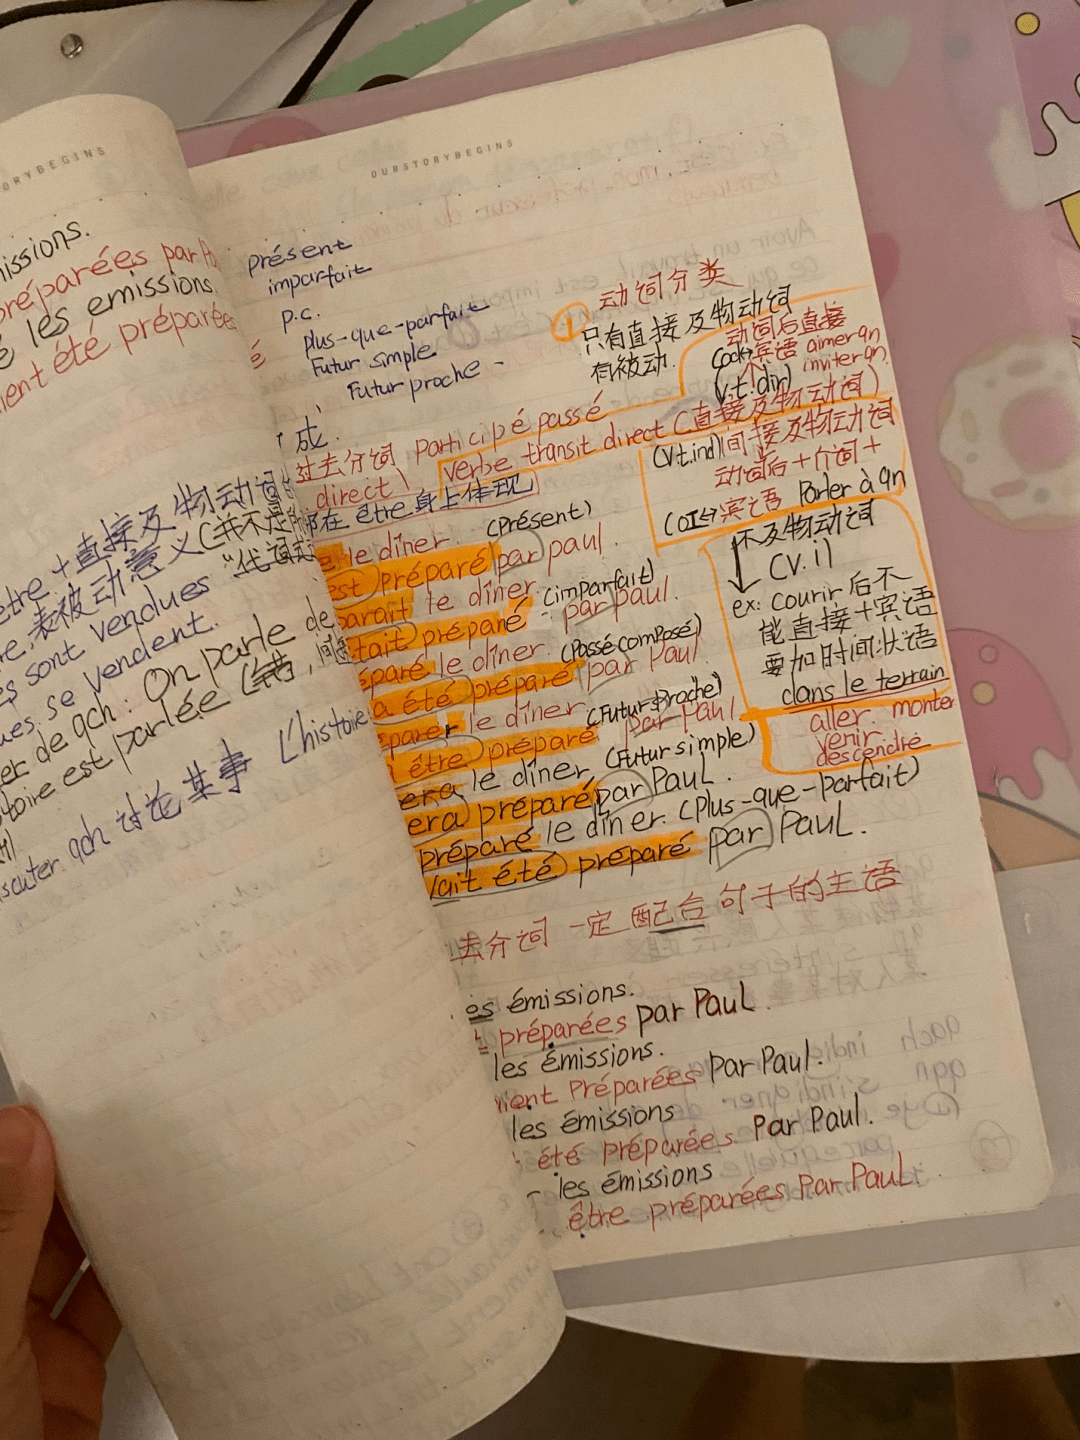 ORYBEGINS
issions.
réparées par
é les emissions.
ient été préparée
être + 直接及物动词
表被动意义(
s sont vendues
ues se vendent.
er de qch: On parle de
toire est parlée
L'histoire
scuter qch 讨论某事
OURSTORYBEGINS
présent
imparfait
p.c.
plus-que-parfait
Futur simple
Futur proche -
① 动词分类
只有直接及物动词
有被动.
动词后直接
宾语 aimer qn
(v.t.dir) inviter qn
成.
过去分词 participé passé
Verbe transit direct (直接及物动词)
direct)
在 être 身上体现
(v.t.ind)间接及物动词
动词后+介词+
宾语 Parler à qn
不及物动词
(V.i)
ex: courir 后不
能直接+宾语
要加时间状语
dans le terrain
aller. monter
venir
descendre
le dîner. (Présent)
est préparé par paul.
parait le dîner. (imparfait)
tait préparé par paul.
éparé le dîner. (Passé composé)
a été préparé par Paul
éparer le dîner (Futur proche)
être préparé par Paul
era le dîner (Futur simple)
era préparé par PauL.
préparé le dîner. (Plus-que-parfait)
ait été préparé par PauL.
去分词 一定 配合 句子的主语
es émissions.
préparées par PauL.
les émissions.
ient Préparées par Paul.
les émissions
été préparées Par Paul.
les émissions
être préparées Par PauL.